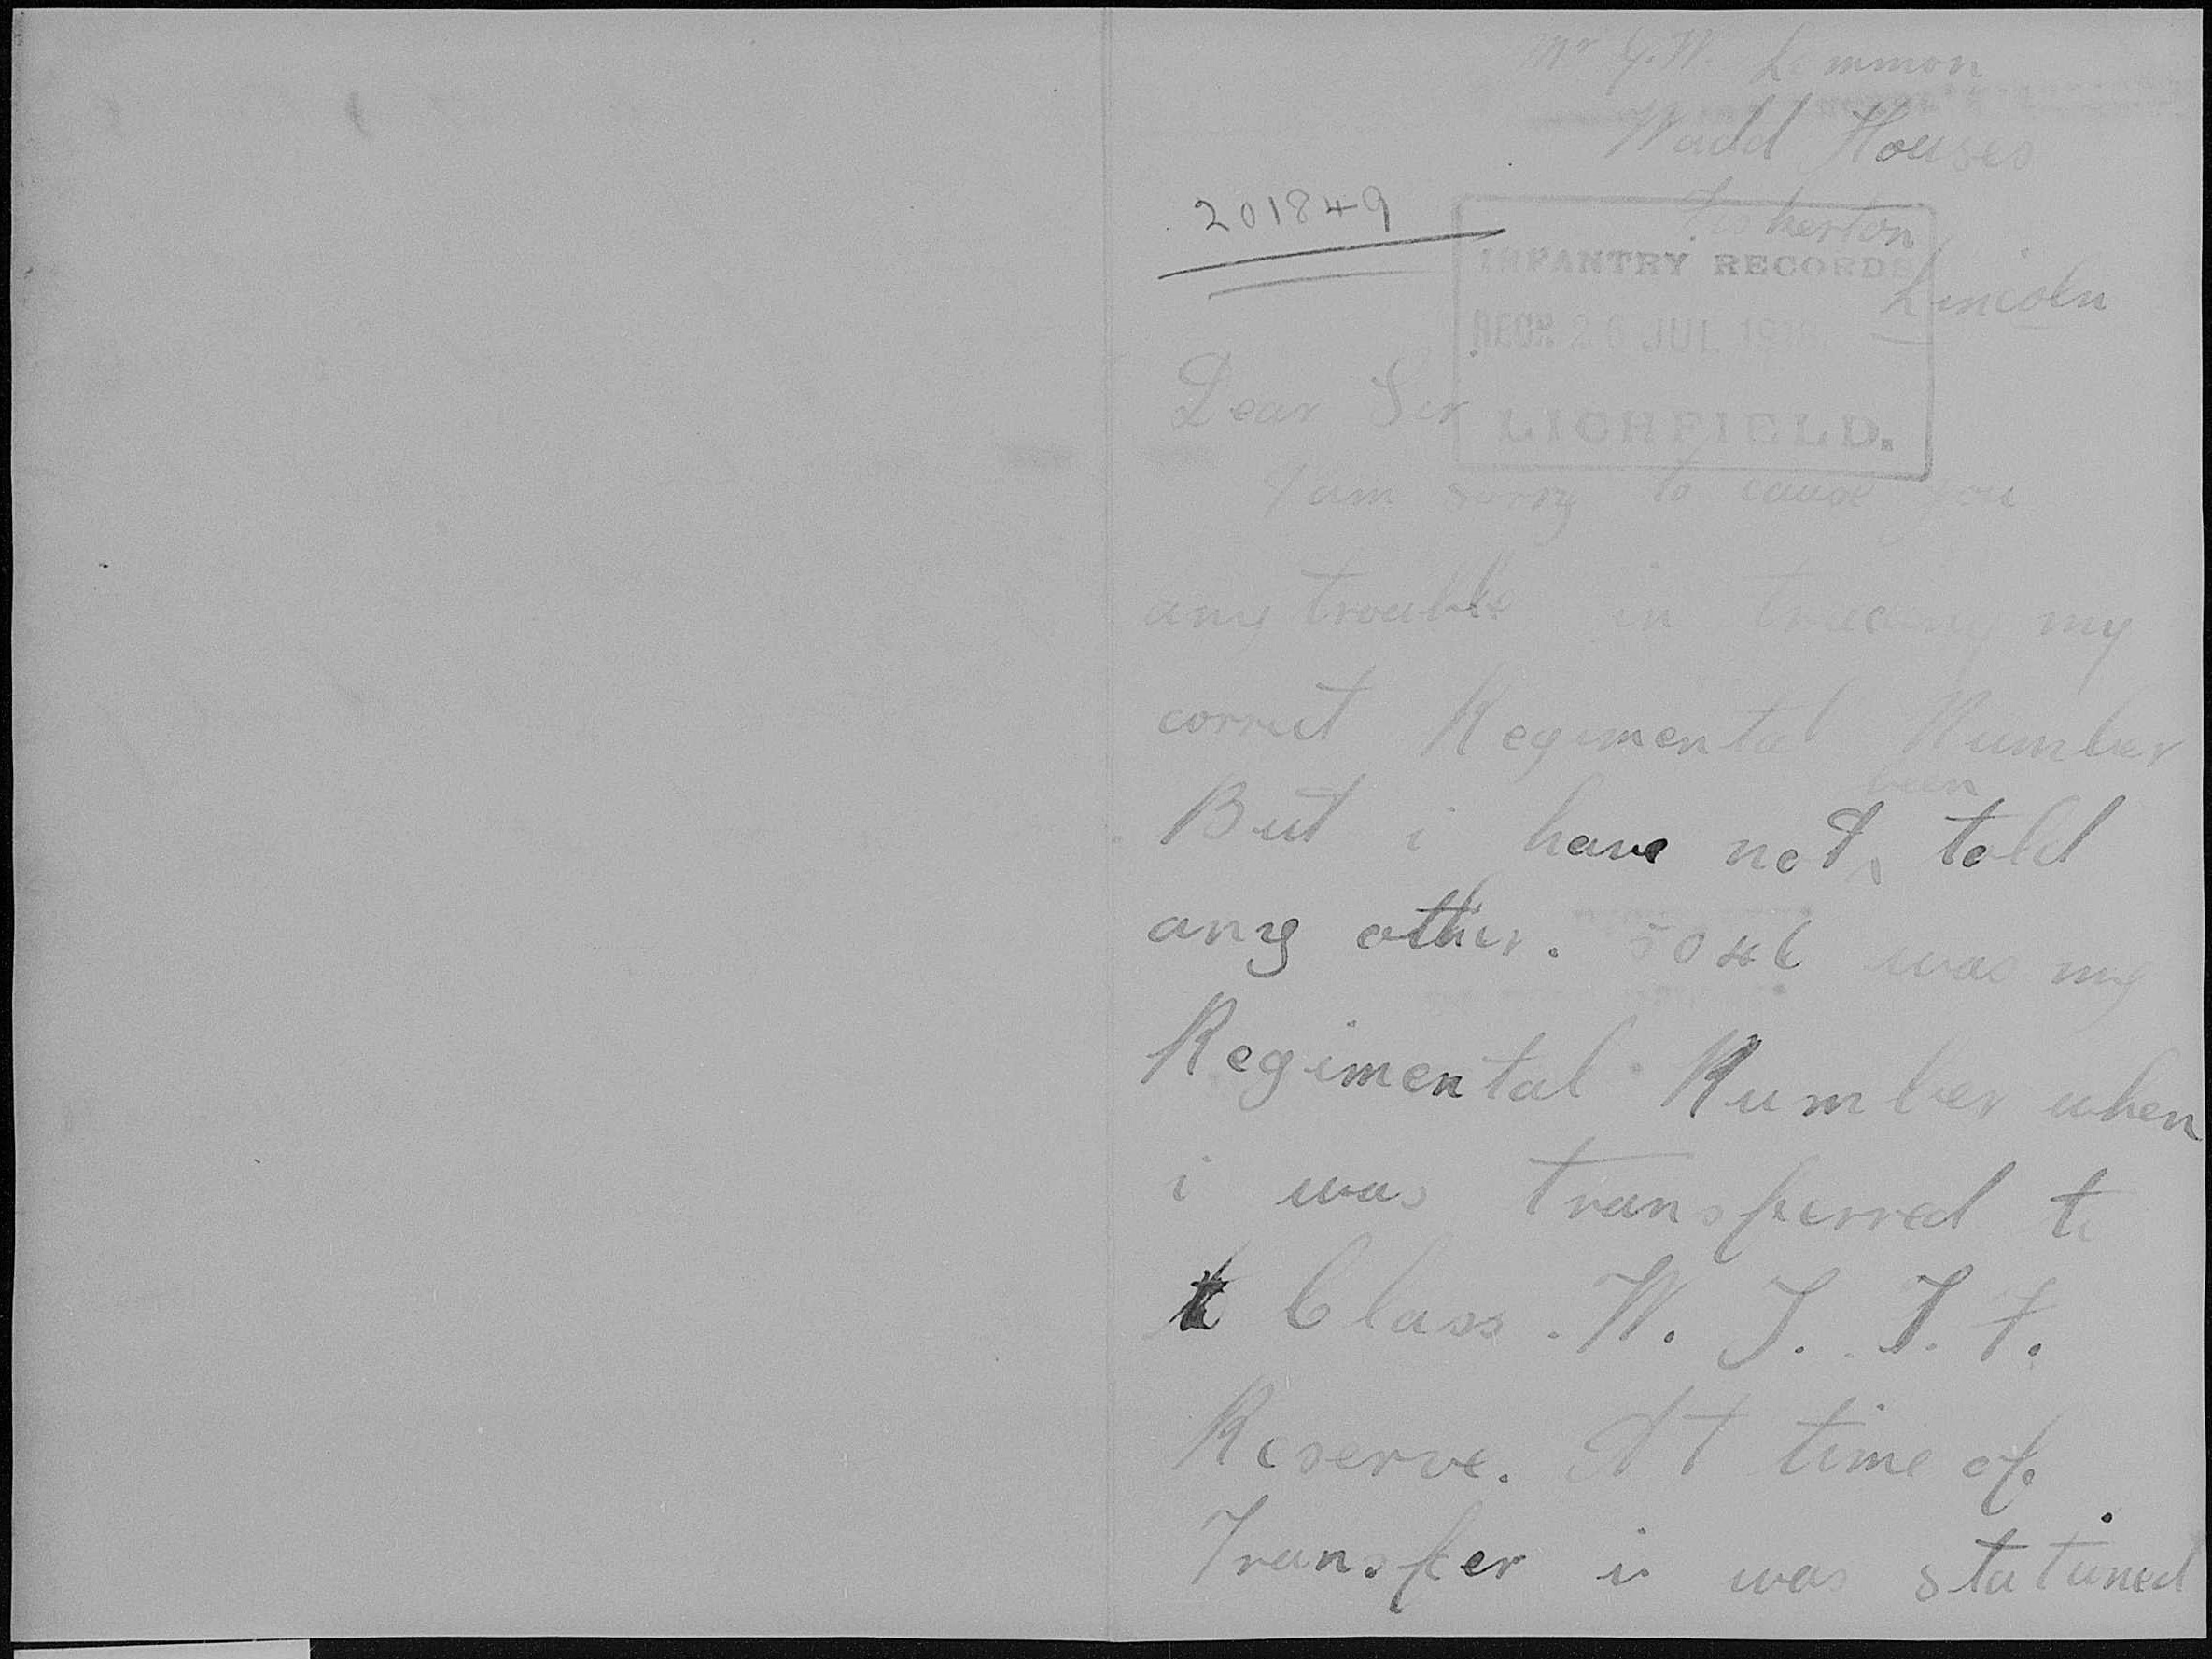 Mr G.W. Lemmon
Wadd Houses
Fiskerton
Lincoln
201849
INFANTRY RECORDS
RECD 26 JUL
LICHFIELD.
Dear Sir
I am sorry to cause you
any trouble in tracing my
correct Regimental Number
But i have not been told
any other. 5046 was my
Regimental Number when
i was transferred to
to Class. W. T. F.
Reserve. At time of
Transfer i was stationed